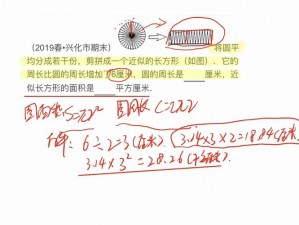 （2019春•兴化市期末） 将圆平
均分成若干份，剪拼成一个近似的长方形（如图）．它的
周长比圆的周长增加了6厘米，圆的周长是____厘米，近
似长方形的面积是____平方厘米．
圆面积S=πr² 圆周长 C=2πr
解：6÷2=3(厘米). 3.14×3×2=18.84(厘米)
3.14×3²=28.26(平方厘米).